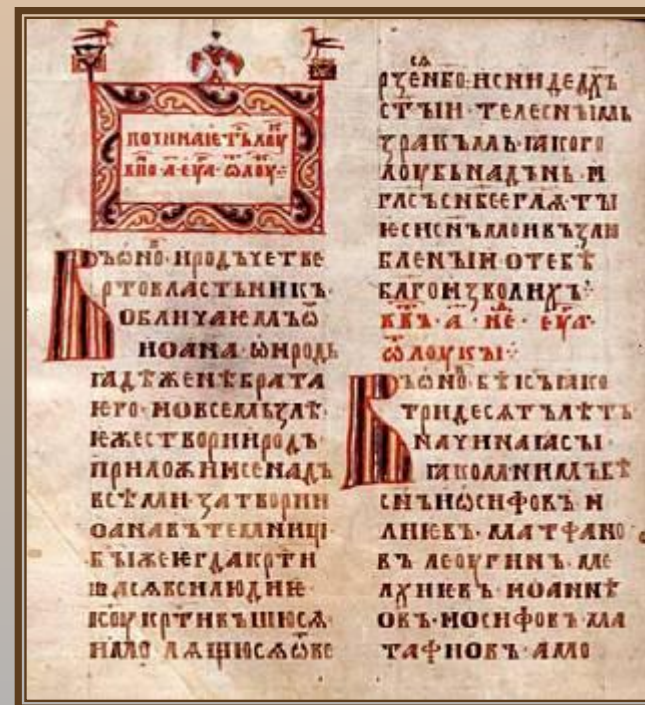 ПОЧИНАѤТЪ ЛОУ
·А· ЕУА· Ѿ ЛОУ·:·
ВЪѠНО· ИРОДЪ ЧЕТВЕ
РТОВЛАСТЬНИКЪ·
ОБЛИЧАѤМЪ Ѿ
ИОАНА· Ѡ ИРОДЬ
ꙖДѢ ЖЕНѢ БРАТА
ѤГО· И О ВСЕМЬ ЗЛѢ·
ѤЖЕ СТВОРИ ИРОДЪ·
ПРИЛОЖИ И СЕ НАДЪ
ВСѢМИ· ЗАТВОРИ И
ОАНА ВЪ ТЕМНИЦІ·
БЫ ЖЕ ѤГДА КРТИ
ША СѦ ВСИ ЛЮДИѤ·
ІСОУ КРТИВЪШЮ СѦ·
И МОЛѦЩЮ СѦ ѾВЕ
СѦ
РЗЕ НБО· И СНИДЕ ДХЪ
СТЫИ· ТЕЛЕСНЫМЬ
ЗРАКЪМЬ· ꙖКО ГО
ЛОУБЬ НА ДЬНЬ· И
ГЛСЪ СЪ НБСЕ ГЛѦ· ТЫ
ѤСИ СНЪ МОИ ВЪЗЛЮ
БЛЕНЫИ· О ТЕБѢ
БЛГОИЗВОЛИХЪ·:·
·А· НЕ· ЕУА·
Ѿ ЛОУКЫ·:·
ВЪѠНО· БѢ ІСЪ ꙖКО
ТРИДЕСѦТЪ ЛѢТЪ·
НАЧИНАꙖ СЫ·
ꙖКО МНИМЪ БѢ
СНЪ ИѠСИФОВЪ· И
ЛИЕВЪ· МАТФАНО
ВЪ ЛЕОУГИНЪ· МЕ
ЛХИЕВЪ· ИОАННѢ
ОВЪ· ИОСИФОВЪ· МА
ТАФИОВЪ· АМО